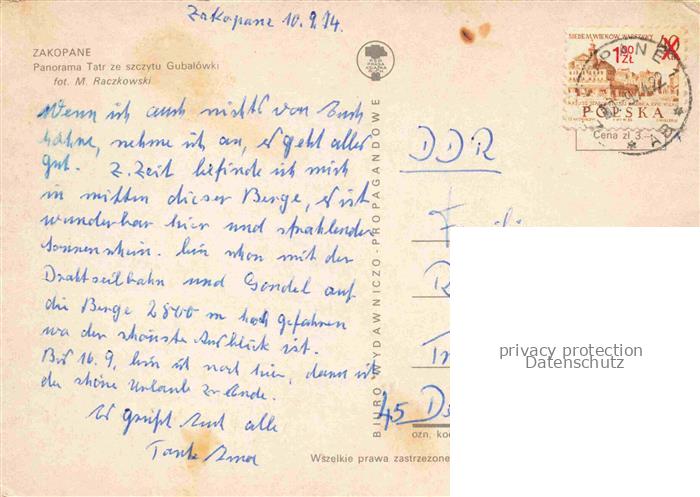 Zakopane 10.9.74.
ZAKOPANE
Panorama Tatr ze szczytu Gubałówki
fot. M. Raczkowski
RSW
PRASA
KSIĄŻKA
RUCH
Wenn ich auch nichts von Euch
höhre, nehme ich an, es geht alles
gut. Z. Zeit befinde ich mich
in mitten dieser Berge, es ist
wunderbar hier und strahlender
Sonnenschein. bin schon mit der
Drahtseilbahn und Gondel auf
die Berge 2800 m hoch gefahren
wo der schönste Ausblick ist.
Bis 16.9. bin ich noch hier, dann ist
der schöne Urlaub zu ende.
Es grüßt Euch alle
Tante
BIURO WYDAWNICZO-PROPAGANDOWE
SIEDEM WIEKÓW WARSZAWY
1,50 ZŁ
POLSKA
Cena zł 3.—
DDR
45 D
ozn. ko
Wszelkie prawa zastrzeżone
privacy protection
Datenschutz